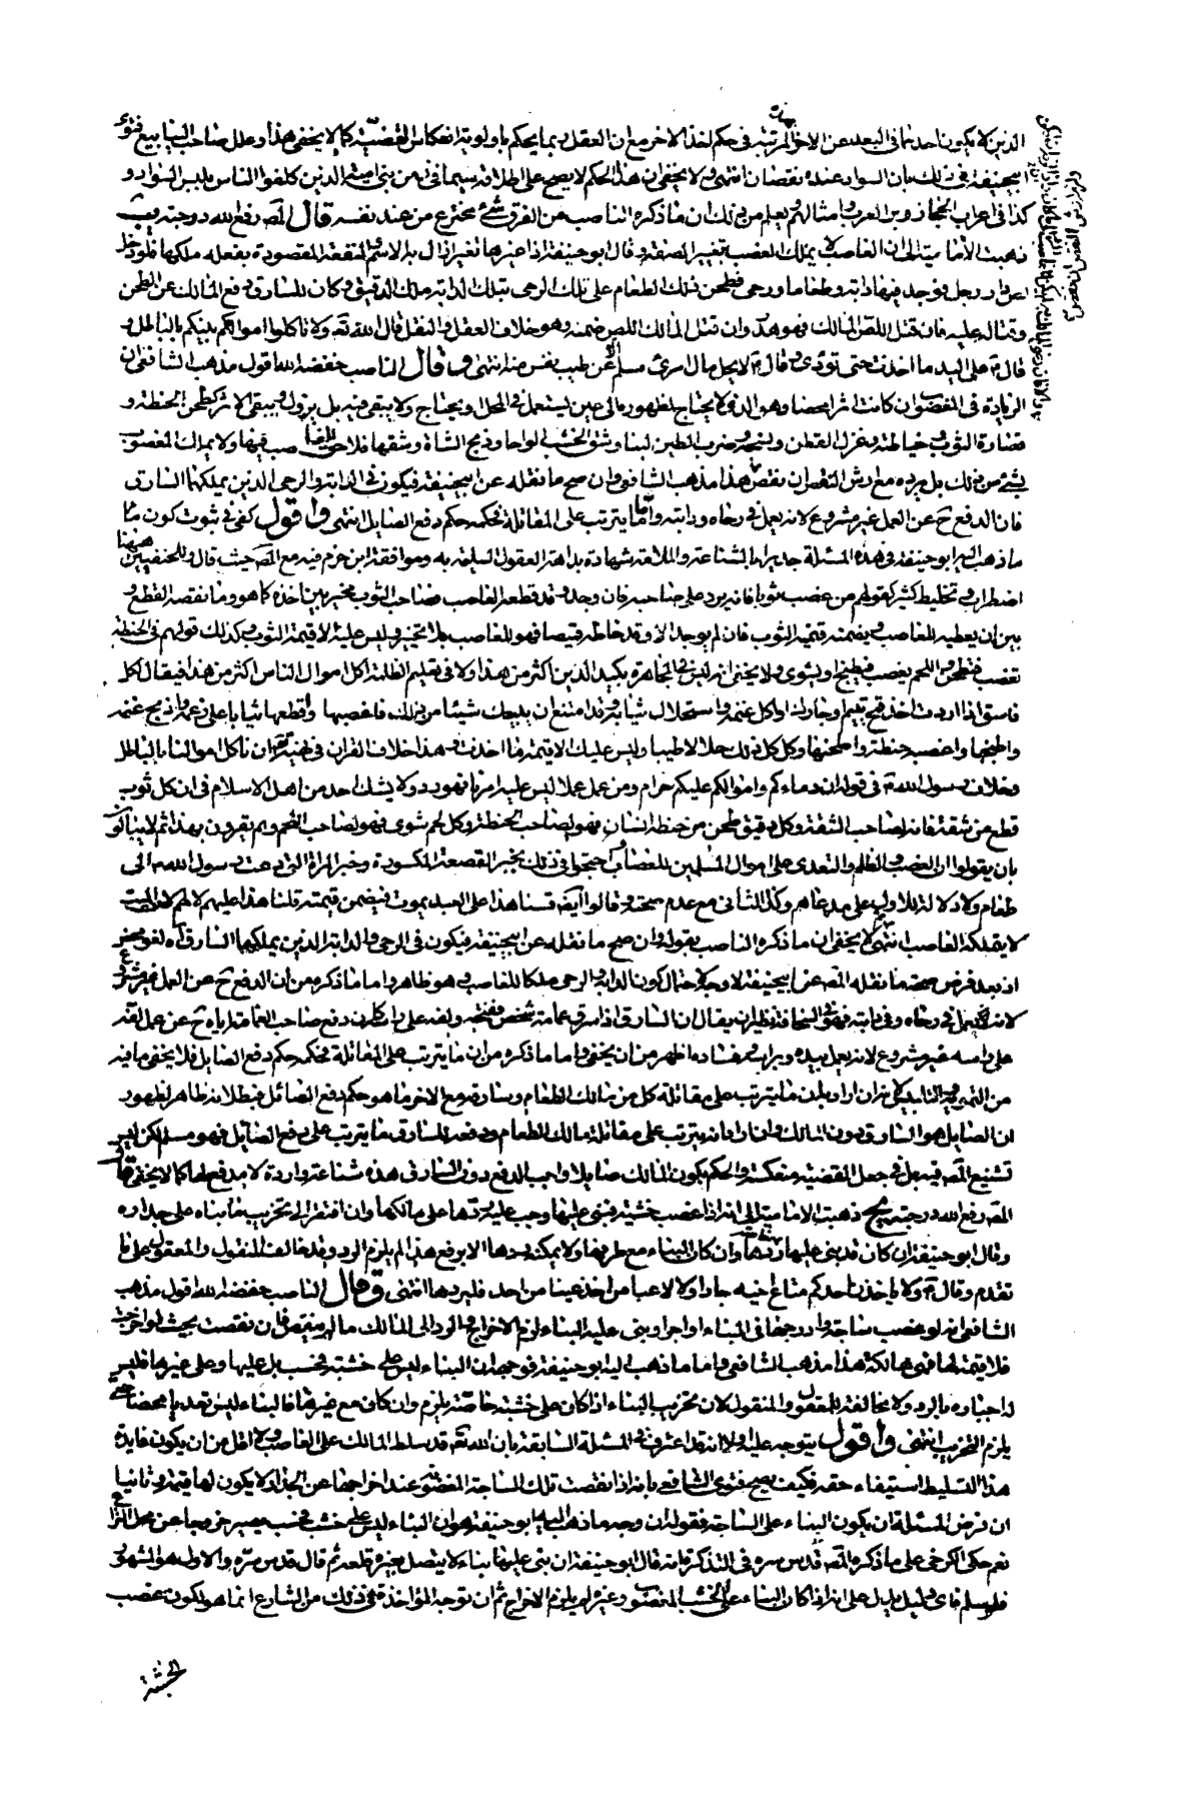 الذين لا يكون احدهما في البعد عن الاخر المرتبة في حكم اخذ الاخر مع ان العقل ربما يحكم باولوية انعكاس القضية كما لا يخفى هذا وعلل صاحب الينابيع فتوى
ابيحنيفة في ذلك بان السواد عنده نقصان انتهى ولا يخفى ان هذا الحكم لا يصح على اطلاقه سيما في زمن بني امية الذين كلفوا الناس بلبس السواد و
كذا في اعراب الحجاز وبر العرب وامثالهم ويعلم من ذلك ان ما ذكره الناصب من الفرق شئ مخترع من عند نفسه قال المصـ رفع الله درجته
ذهبت الأمامية الى ان الغاصب لا يملك الغصب بتغيير الصفة وقال ابوحنيفة اذا غيرها تغيرا زال به الاسم والمنفعة المقصودة بفعله ملكها فلو دخل
لص دار رجل فوجد فيها دابة وطعاما ورحى فطحن ذلك الطعام على تلك الرحى بتلك الدابة ملك الدقيق وكان للسارق دفع المالك عن الطحن
وقتاله عليه فان قتل اللص المالك فهو هدر وان قتل المالك اللص ضمنه وهو خلاف العقل والنقل قال الله تعـ ولا تاكلوا اموالكم بينكم بالباطل و
قال م على اليد ما اخذت حتى تؤدى وقال م لا يحل مال امرئ مسلم الا عن طيب نفس منه انتهى وقال الناصب خفضه الله اقول مذهب الشافعي ان
الزيادة في المغصوب ان كانت اثرا محضا وهو الذي لا يحتاج لظهوره الى عين يستعمل في المحل ويحتاج ولا يبقى فيه بل يزول ويبقى الاثر كطحن الحنطة و
قصارة الثوب وخياطته وغزل القطن ونسجه وضرب الطين لبنا وشق الخشب الواحا وذبح الشاة وشقها فلا حق للغاصب فيها ولا يملك المغصوب
بشئ من ذلك بل يرده مع ارش النقص ان نقص هذا مذهب الشافعي وان صح ما نقله عن ابيحنيفة فيكون في الدابة والرحى الذين يملكها السارق
فان الدفع ح عن العمل غير مشروع لانه يعمل في رحاه ودابته وأما ما يترتب على المقاتلة فحكمه حكم دفع الصايل انتهى واقول كفى في ثبوت كون ما
ما ذهب اليه ابوحنيفة في هذه المسئلة جديرا بالشناعة والملامة شهادة بداهة العقول السليمة به وموافقة ابن حزم فيه مع المصـ حيث قال وللحنفيين هيهنا
اضطراب وتخليط كثير كقولهم من غصب ثوبا فانه يرد على صاحبه فان وجد وقد قطعه الغاصب فصاحب الثوب مخير بين اخذه كما هو وما نقصه القطع و
بين ان يعطيه للغاصب ويضمنه قيمة الثوب فان لم يوجد الا وقد خاطه قميصا فهو للغاصب بلا تخيير وليس عليه الا قيمة الثوب وكذلك قولهم في الحنطة
تغصب فتطحن واللحم يغصب فيطبخ او يشوى ولا يخفى انه ليس في المجاهرة بكيد الدين اكثر من هذا ولا في تعليم الظلمة اكل اموال الناس اكثر من هذا فيقال لكل
فاسق اذا اردت اخذ قمح يتيم او جارك او اكل غنمه واستحلال ثيابه وقد امتنع ان يبيعك شيئا من ذلك فاغصبها واقطعها ثيابا على رغمه واذبح غنمه
واطبخها واغصب حنطته واطحنها وكل كل ذلك حلالا طيبا وليس عليك الا قيمة ما اخذت وهذا خلاف القران في نهيه تعـ ان ناكل اموالنا بالباطل
وخلاف رسول الله ص في قوله ان دماءكم واموالكم عليكم حرام ومن عمل عملا ليس عليه امرنا فهو رد ولا يشك احد من اهل الاسلام في ان كل ثوب
قطع من شقة فانه لصاحب الشقة وكل دقيق طحن من حنطة انسان فهو لصاحب الحنطة وكل لحم شوى فهو لصاحب اللحم وهم يقرون بهذا ثم لا يبالون
بان يقولوا ان الغصب والظلم والتعدى على اموال المسلمين للغصاب واحتجوا في ذلك بخبر القصعة المكسورة وخبر المراة التي دعت رسول الله ص الى
طعام ولا دلالة للاول على مدعاهم وكذا الثاني مع عدم صحته وقالوا ايضـ قسنا هذا على العبد يموت فيضمن قيمته قلنا هذا عليهم لا لهم لان الميت
لا يتملكه الغاصب انتهى ولا يخفى ان ما ذكره الناصب بقوله وان صح ما نقله عن ابيحنيفة فيكون في الرحى والدابة الذين يملكهما السارق آه لغو محض
اذ بعد فرض صحة ما نقله المصـ عن ابيحنيفة لا وجه لاحتمال كون الدابة والرحى ملكا للغاصب وهو ظاهر واما ما ذكره من ان الدفع ح عن العمل غير مشروع
لانه يعمل في رحاه وفي دابته فهو في السخافة نظير ان يقال ان السارق اذا سرق عمامة شخص ففتحه ولفه على راسه كان دفع صاحب العمامة اياه ح عن عمل لفه
على راسه غير مشروع لانه يعمل بيده وبراسه وفساده اظهر من ان يخفى واما ما ذكره من ان ما يترتب على المقاتلة فحكمه حكم دفع الصايل فلا يخفى ما فيه
من التمويه والتلبيس لانه ان اراد بان ما يترتب على مقاتلة كل من مالك الطعام وسارقه مع الاخر ما هو حكم دفع الصائل فبطلانه ظاهر لظهور
ان الصايل هو السارق دون المالك وان اراد انه يترتب على مقاتلة مالك الطعام ودفعه للسارق ما يترتب على دفع الصايل فهو مسلم لكن ليس
تشنيع المصـ فيه بل في جعل القضية منعكسة والحكم بكون المالك صايلا واجب الدفع دون السارق هذه شناعة واردة لا مدفع لها كما لا يخفى قال
المصـ رفع الله درجته ذهبت الامامية الى انه اذا غصب خشبة فبنى عليها وجب عليه ردها على مالكها وان افتقر الى تخريب ما بناه على جداره
وقال ابوحنيفة ان كان قد بنى عليها ردها وان كان البناء مع طرفها ولا يمكنه ردها الا برفع هذا لم يلزم الرد وقد خالف المنقول والمعقول على ما
تقدم وقال م ولا ياخذن احدكم متاع اخيه جادا ولا لاعبا من اخذ عصا من احد فليردها انتهى وقال الناصب خفضه الله اقول مذهب
الشافعي انه لو غصب ساجة وادرجها في البناء او اجرا وبنى عليه البناء لزم الاخراج والرد الى المالك ما لم يتعفن فان نقصت بحيث لو اخرجت
فلا قيمة لها فهي هالكة هذا مذهب الشافعي واما ما ذهب اليه ابوحنيفة فوجهه ان البناء ليس على خشبته فحسب بل عليها وعلى غيرها فليس
له اجباره بالرد ولا مخالفة للمعقول والمنقول لان تخريب البناء اذا كان على خشبة خاصة يلزم وان كان مع غيرها فالبناء ليس تعديا محضا حتى
يلزم التخريب انتهى واقول يتوجه عليه اولا انه قد اعترف في المسئلة السابقة بان الله تعـ قد سلط المالك على الغاصب ولا اقل من ان يكون فايدة
هذا التسليط استيفاء حقه فكيف يصح فتوى الشافعي بانه اذا نقصت تلك الساجة المغصوبة عند اخراجها عن الجدار لا يكون لها قيمة وثانيا
ان فرض المسئلة ان يكون البناء على الساجة فقوله ان وجه ما ذهب اليه ابوحنيفة هو ان البناء ليس على خشب فحسب يصير خروجا عن محل النزاع
نعم حكى الكرخى على ما ذكره المصـ قدس سره في التذكرة انه قال ابوحنيفة ان بنى عليها بناء لا يتصل بغيره قلعه ثم قال قدس سره والاول هو المشهور
فلو سلم فاى دليل يدل على انه اذا كان البناء على الخشب المغصوب وغيره لم يلزم الاخراج ثم ان توجه المؤاخذة في ذلك من الشارع انما هو لكون غصب
الخشبة